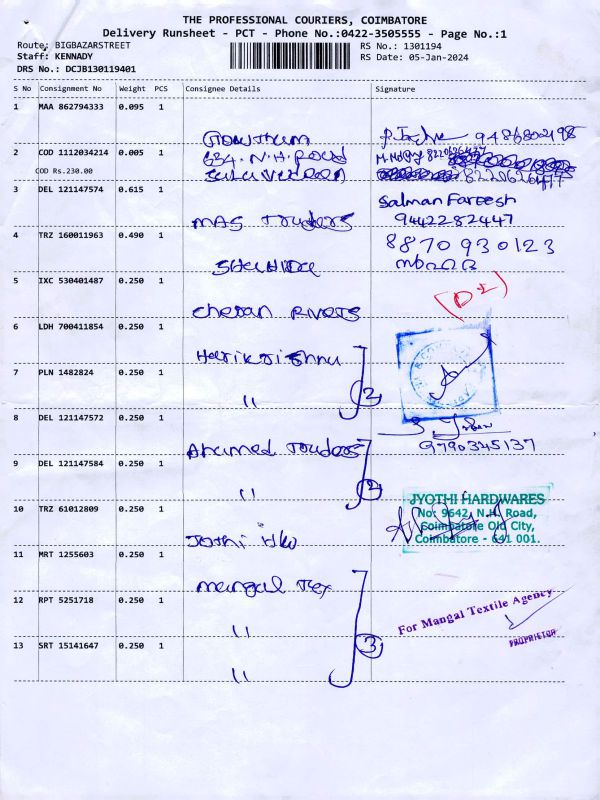 THE PROFESSIONAL COURIERS, COIMBATORE
Delivery Runsheet - PCT - Phone No.:0422-3505555 - Page No.:1
Route: BIGBAZARSTREET
RS No.: 1301194
Staff: KENNADY
RS Date: 05-Jan-2024
DRS No.: DCJB130119401
S No Consignment No Weight PCS Consignee Details Signature
1 MAA 862794333 0.095 1
Gowthum 9486802198
2 COD 1112034214 0.005 1 634. N.H. Road
COD Rs.230.00
8220626477
3 DEL 121147574 0.615 1
Salman Fareesh
MAS Traders 9442282447
4 TRZ 160011963 0.490 1 8870930123
5 IXC 530401487 0.250 1
Cheran Rivets
6 LDH 700411854 0.250 1
Harikrishna
7 PLN 1482824 0.250 1
" 2
8 DEL 121147572 0.250 1
Ahamed Traders 9790345137
9 DEL 121147584 0.250 1
" 2
JYOTHI HARDWARES
No: 9642, N.H. Road,
10 TRZ 61012809 0.250 1
Coimbatore Old City,
Jothi H/w Coimbatore - 641 001.
11 MRT 1255603 0.250 1
Mangal Tex
12 RPT 5251718 0.250 1
For Mangal Textile Agency
"
PROPRIETOR
13 SRT 15141647 0.250 1
3
"